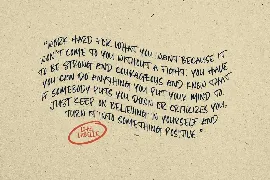 "WORK HARD FOR WHAT YOU WANT BECAUSE IT
WON'T COME TO YOU WITHOUT A FIGHT. YOU HAVE
TO BE STRONG AND COURAGEOUS AND KNOW THAT
YOU CAN DO ANYTHING YOU PUT YOUR MIND TO.
IF SOMEBODY PUTS YOU DOWN OR CRITICIZES YOU,
JUST KEEP ON BELIEVING IN YOURSELF AND
TURN IT INTO SOMETHING POSITIVE."